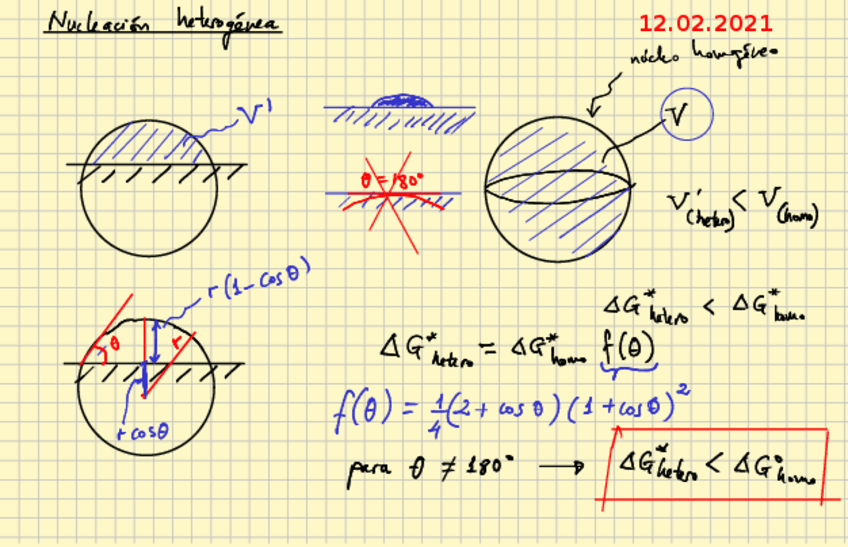 Nucleación heterogénea
12.02.2021
núcleo homogéneo
V'
V
θ = 180°
V'(hetero) < V(homo)
r(1 - cos θ)
θ
r
r cos θ
ΔG*hetero < ΔG*homo
ΔG*hetero = ΔG*homo f(θ)
f(θ) = 1/4 (2 + cos θ) (1 + cos θ)²
para θ ≠ 180° → ΔG*hetero < ΔG°homo